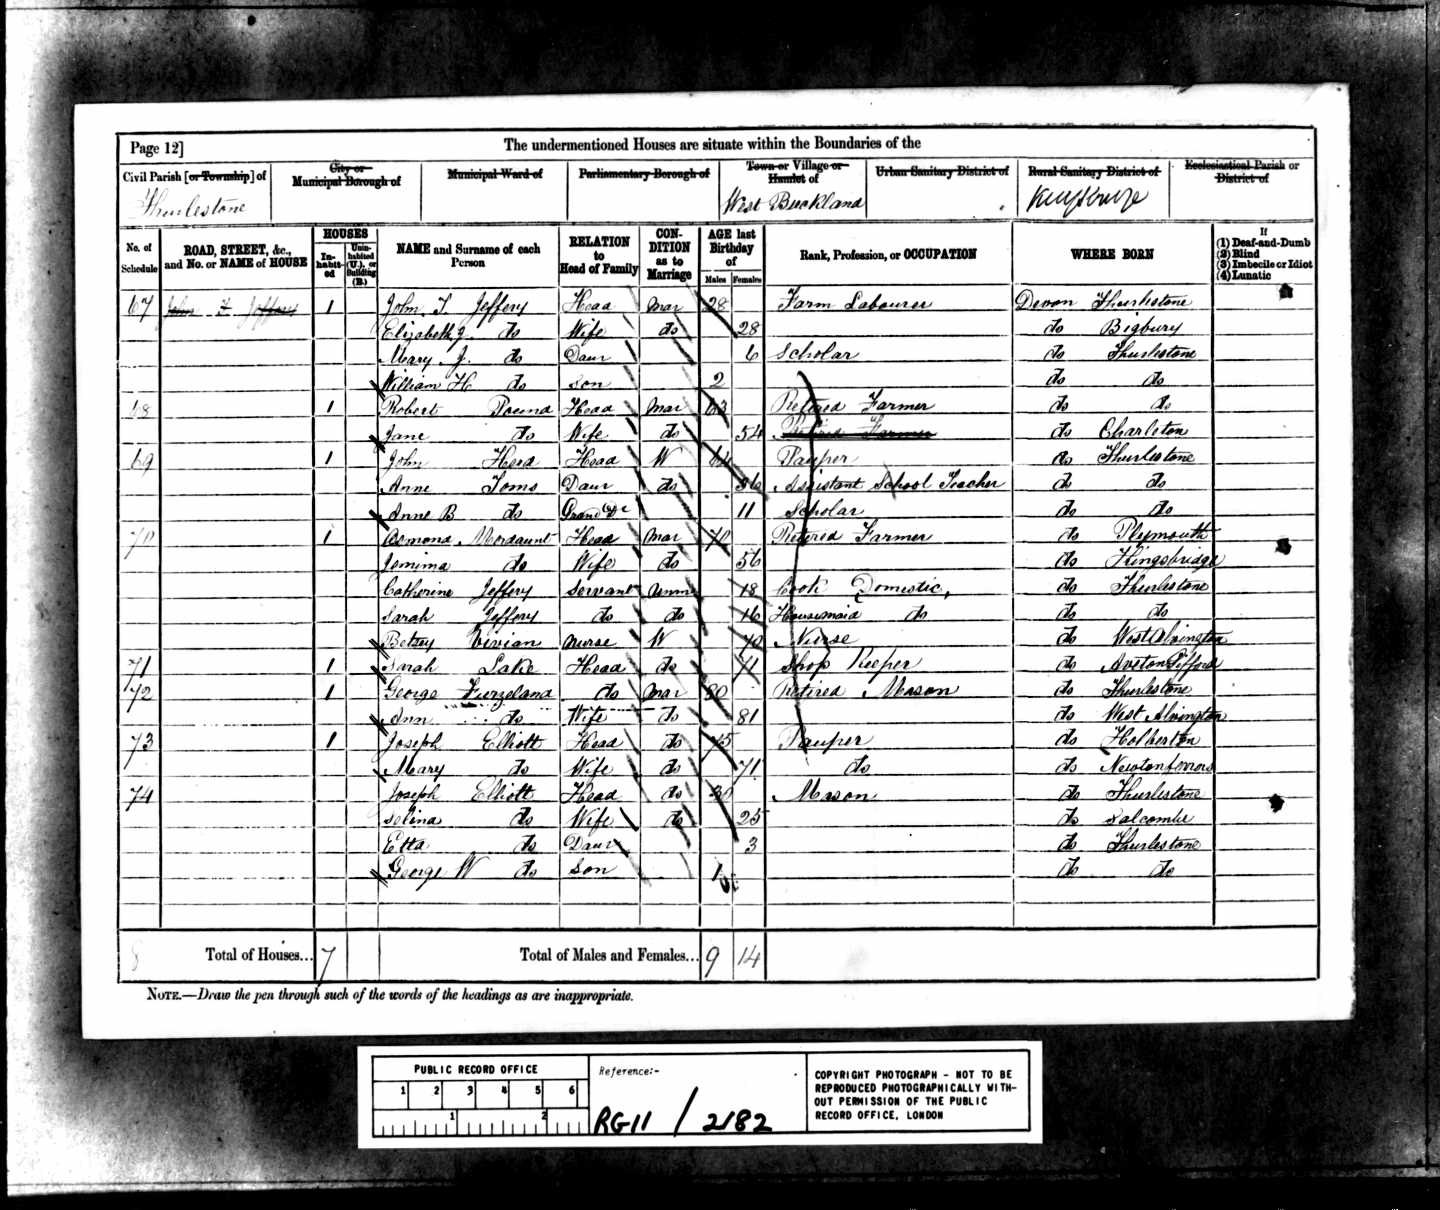 Page 12]
The undermentioned Houses are situate within the Boundaries of the
Civil Parish [or Township] of
City or Municipal Borough of
Municipal Ward of
Parliamentary Borough of
Town or Village or Hamlet of
Urban Sanitary District of
Rural Sanitary District of
Ecclesiastical Parish or District of
Thurlestone
West Buckland
No. of Schedule
ROAD, STREET, &c., and No. or NAME of HOUSE
HOUSES
Inhabited
Uninhabited (U.), or Building (B.)
NAME and Surname of each Person
RELATION to Head of Family
CONDITION as to Marriage
AGE last Birthday of
Males
Females
Rank, Profession, or OCCUPATION
WHERE BORN
If
(1) Deaf-and-Dumb
(2) Blind
(3) Imbecile or Idiot
(4) Lunatic
67 John T Jeffery 1 John T Jeffery Head Mar 28 Farm Labourer Devon Thurlestone
Elizabeth J. do Wife do 28 do Bigbury
Mary J. do Daur 6 Scholar do Thurlestone
William H do Son 2 do do
68 1 Robert Pound Head Mar 63 Retired Farmer do do
Jane do Wife do 54 Retired Farmer do Charleton
69 1 John Head W Pauper do Thurlestone
Anne Toms Daur do 36 Assistant School Teacher do do
Anne B do Grand Dr 11 Scholar do do
70 1 Osmond Mordaunt Head Mar 70 Retired Farmer do Plymouth
Jemima do Wife do 56 do Kingsbridge
Catherine Jeffery Servant Unm 18 Cook Domestic, do Thurlestone
Sarah Jeffery do do 16 Housemaid do do do
Betsey Vivian Nurse W 70 Nurse do West Alvington
71 1 Sarah Lake Head do 71 Shop Keeper do Aveton Gifford
72 1 George Furzeland do Mar 80 Retired Mason do Thurlestone
Ann do Wife do 81 do West Alvington
73 1 Joseph Elliott Head do 75 Pauper do Holberton
Mary do Wife do 71 do do Newtonferrers
74 Joseph Elliott Head do 30 Mason do Thurlestone
Selina do Wife do 25 do Salcombe
Etta do Daur 3 do Thurlestone
George W do Son 1 do do
8 Total of Houses... 7 Total of Males and Females... 9 14
NOTE.—Draw the pen through such of the words of the headings as are inappropriate.
PUBLIC RECORD OFFICE
1 2 3 4 5 6
1 2
Reference:-
RG11 / 2182
COPYRIGHT PHOTOGRAPH - NOT TO BE
REPRODUCED PHOTOGRAPHICALLY WITH-
OUT PERMISSION OF THE PUBLIC
RECORD OFFICE, LONDON